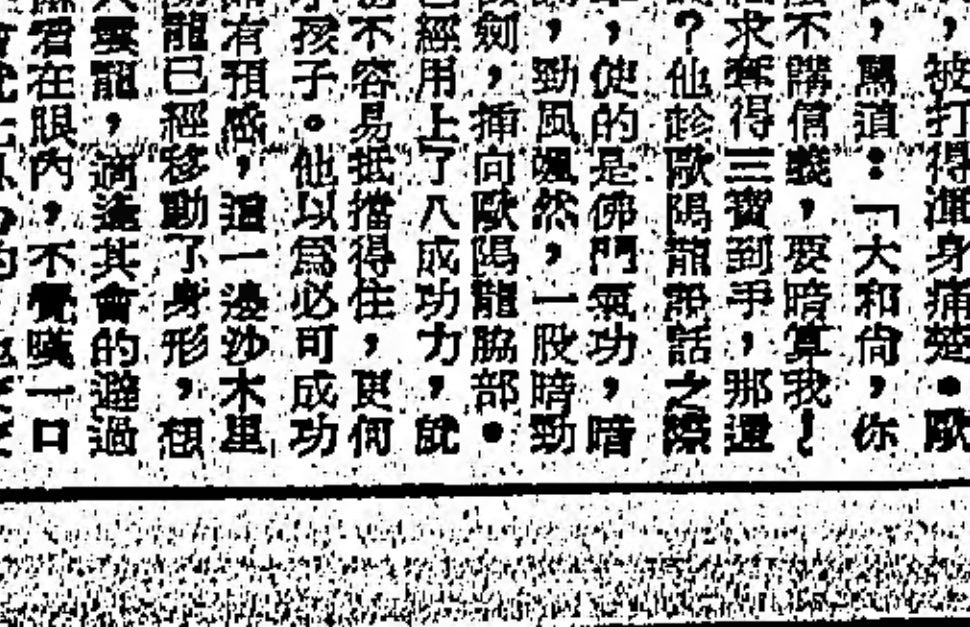 ，被打得渾身痛楚。歐
，罵道：「大和尙，你
不講信義，要暗算我！
求奪得三寶到手，那還
？他趁歐陽龍說話之際
，使的是佛門氣功，暗
，勁風颯然，一股暗勁
劍，插向歐陽龍脇部。
經用上了八成功力，就
不容易抵擋得住，更何
孩子。他以爲必可成功
有預感，這一邊沙木里
龍已經移動了身形，想
雲龍，適逢其會的避過
看在眼內，不覺嘆一口